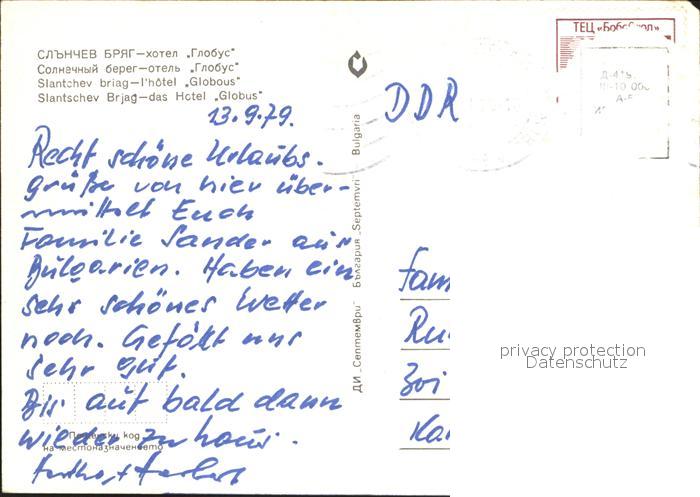 СЛЪНЧЕВ БРЯГ—хотел „Глобус"
Солнечный берег—отель „Глобус"
Slantchev briag—l'hôtel „Globous"
Slantschev Brjag—das Hotel „Globus"
13.9.79.
Recht schöne Urlaubs-
grüße von hier über-
mittelt Euch
Familie Sander aus
Bulgarien. Haben ein
sehr schönes Wetter
noch. Gefällt uns
sehr gut.
Bis auf bald dann
wieder zu haus.
Пощенски код
на местоназначението
ДИ „Септември" България „Septemvri" Bulgaria
ТЕЦ «Бобов дол»
DDR
Fam
Ru
Zwi
Ka
privacy protection
Datenschutz